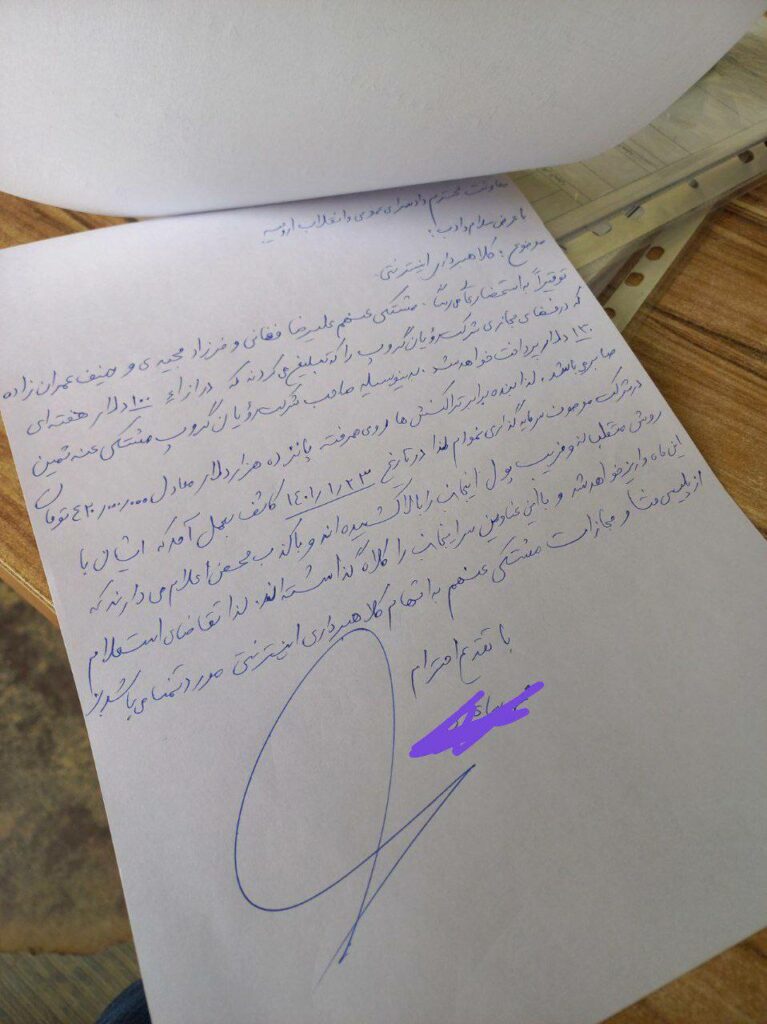 معاونت محترم دادسرای عمومی و انقلاب ارومیه
با عرض سلام و ادب؛
موضوع: کلاهبرداری اینترنتی
توقیراً به استحضار عالی می‌رساند. مشتکی عنهم علیرضا فغانی و فرزاد مجیدی و حنیف عمران زاده
که در فضای مجازی شرکت رویان گروپ را که تبلیغ می‌کردند که در ازاءِ ۱۰۰ دلار هفته‌ای
۱۳۰ دلار پرداخت خواهد شد. بدینوسیله صاحب شرکت رویان گروپ مشتکی عنه ثمین
صابر می‌باشد. لذا بنده برابر تراکنش ها روی هرفته پانزده هزار دلار معادل ۴۲۰٫۰۰۰٫۰۰۰ تومان
در شرکت موصوف سرمایه گذاری نموام لذا در تاریخ ۱۴۰۱/۱/۲۳ کاشف بعمل آمد که ایشان با
روش متقلبانه و فریب پول اینجانب را بالا کشیده اند و با کذب محض اعلام می دارند که
این ماه واریز خواهد شد و با این عناوین سر اینجانب را کلاه گذاشته‌اند. لذا تقاضای استعلام
از پلیس فتا و مجازات مشتکی عنهم به اتهام کلاهبرداری اینترنتی مورد تمنا می باشد.
با تقدیم احترام